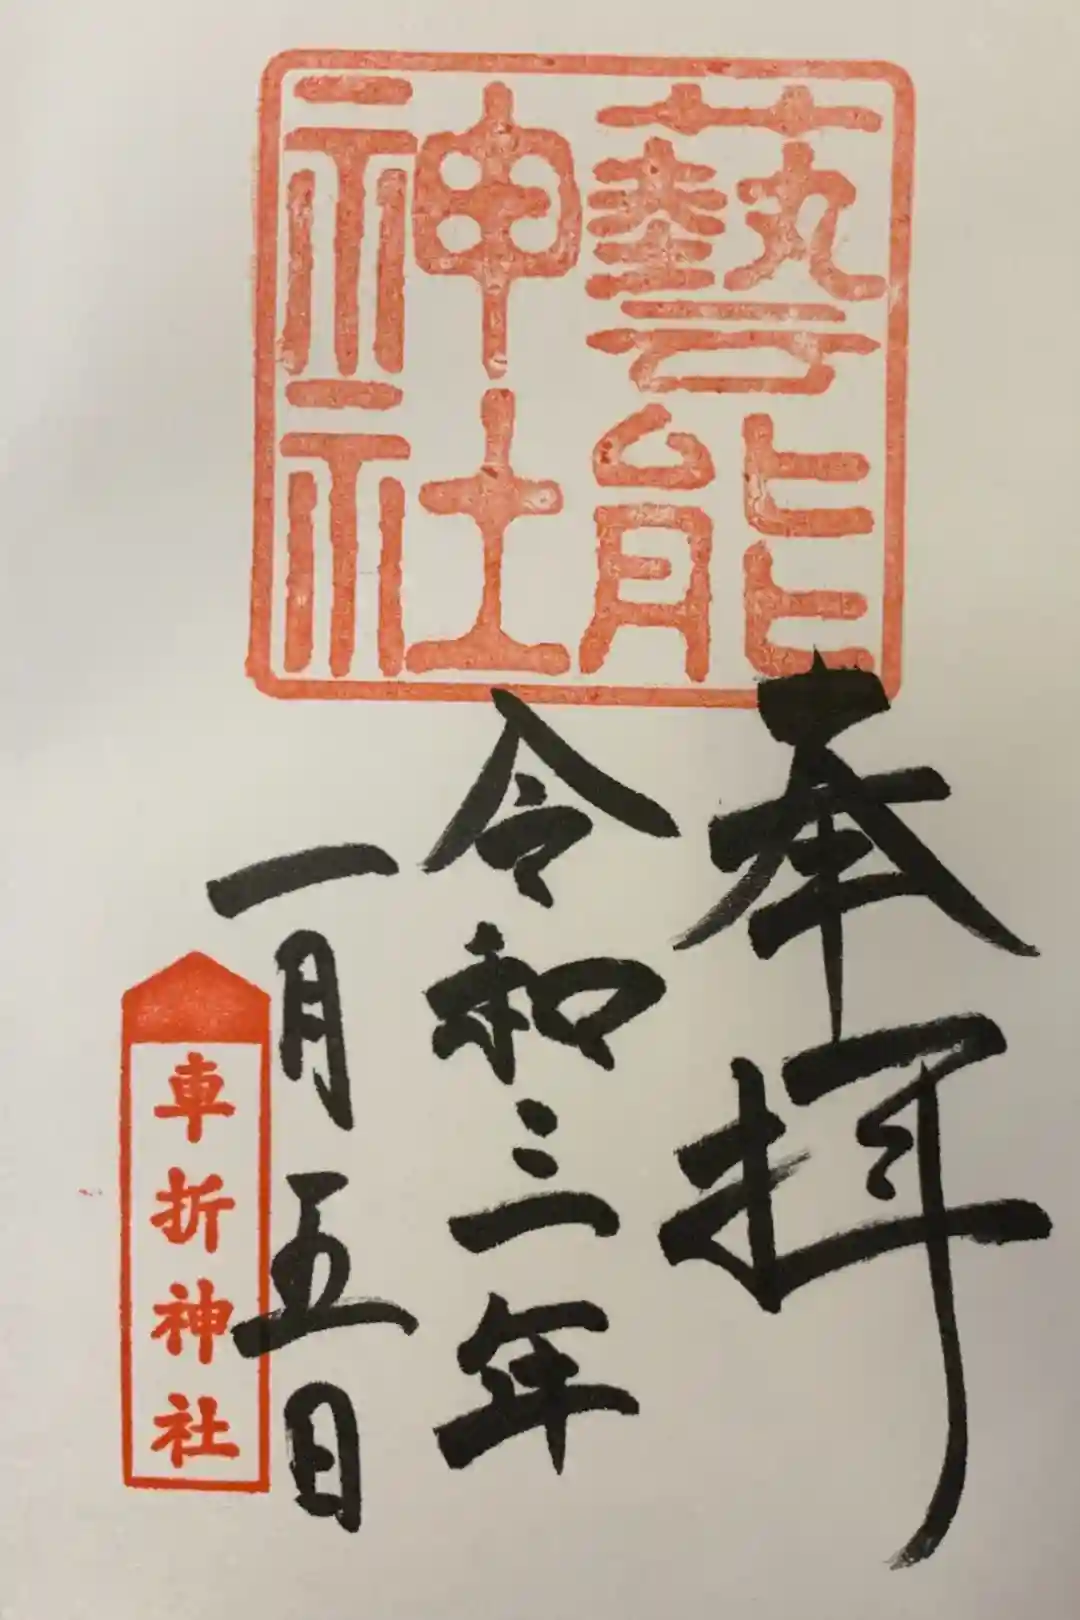 藝能
神社
奉拝
令和三年
一月五日
車折神社